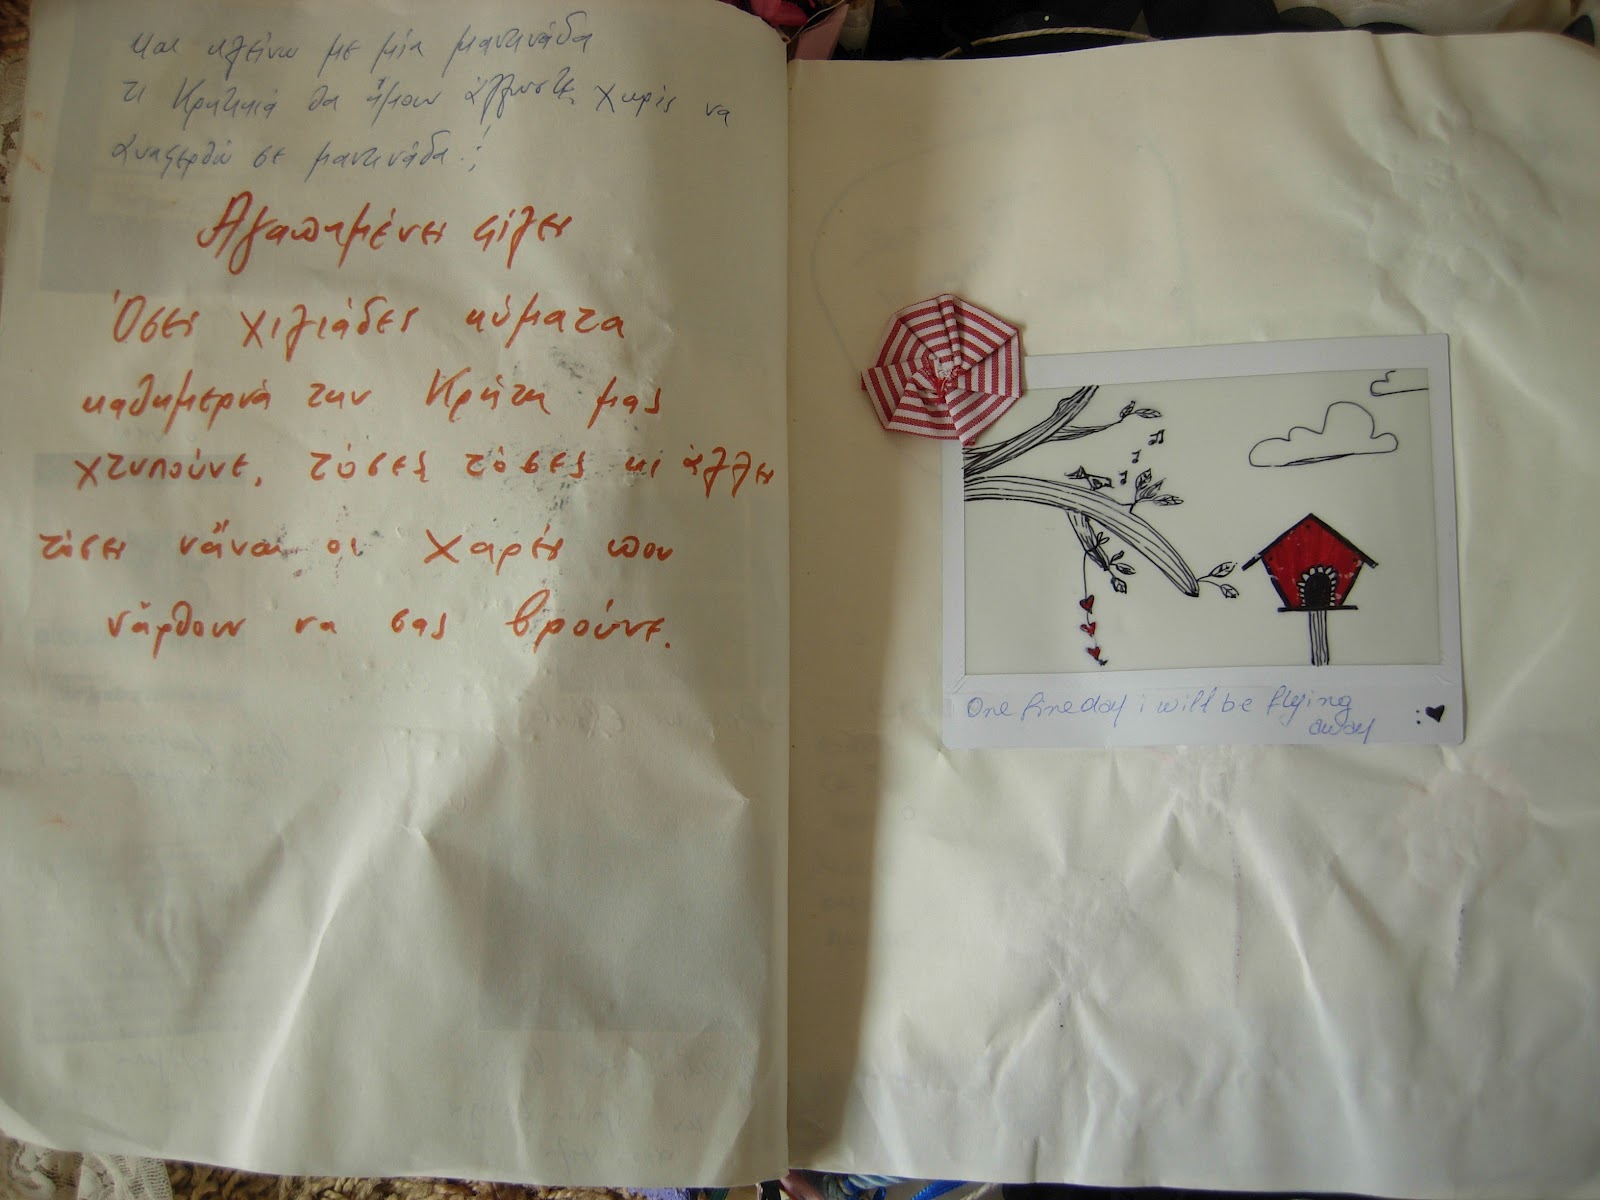 και κλείνω με μία μαντινάδα
τι Κρητικιά θα ήμουν άλλωστε χωρίς να
αναφερθώ σε μαντινάδα!
Αγαπημένες φίλες
Όσες χιλιάδες κύματα
καθημερνά την Κρήτη μας
χτυπούνε, τόσες τόσες κι άλλες
τόσες νἆναι οι χαρές που
νἄρθουν να σας βρούνε.
One fine day i will be flying
away